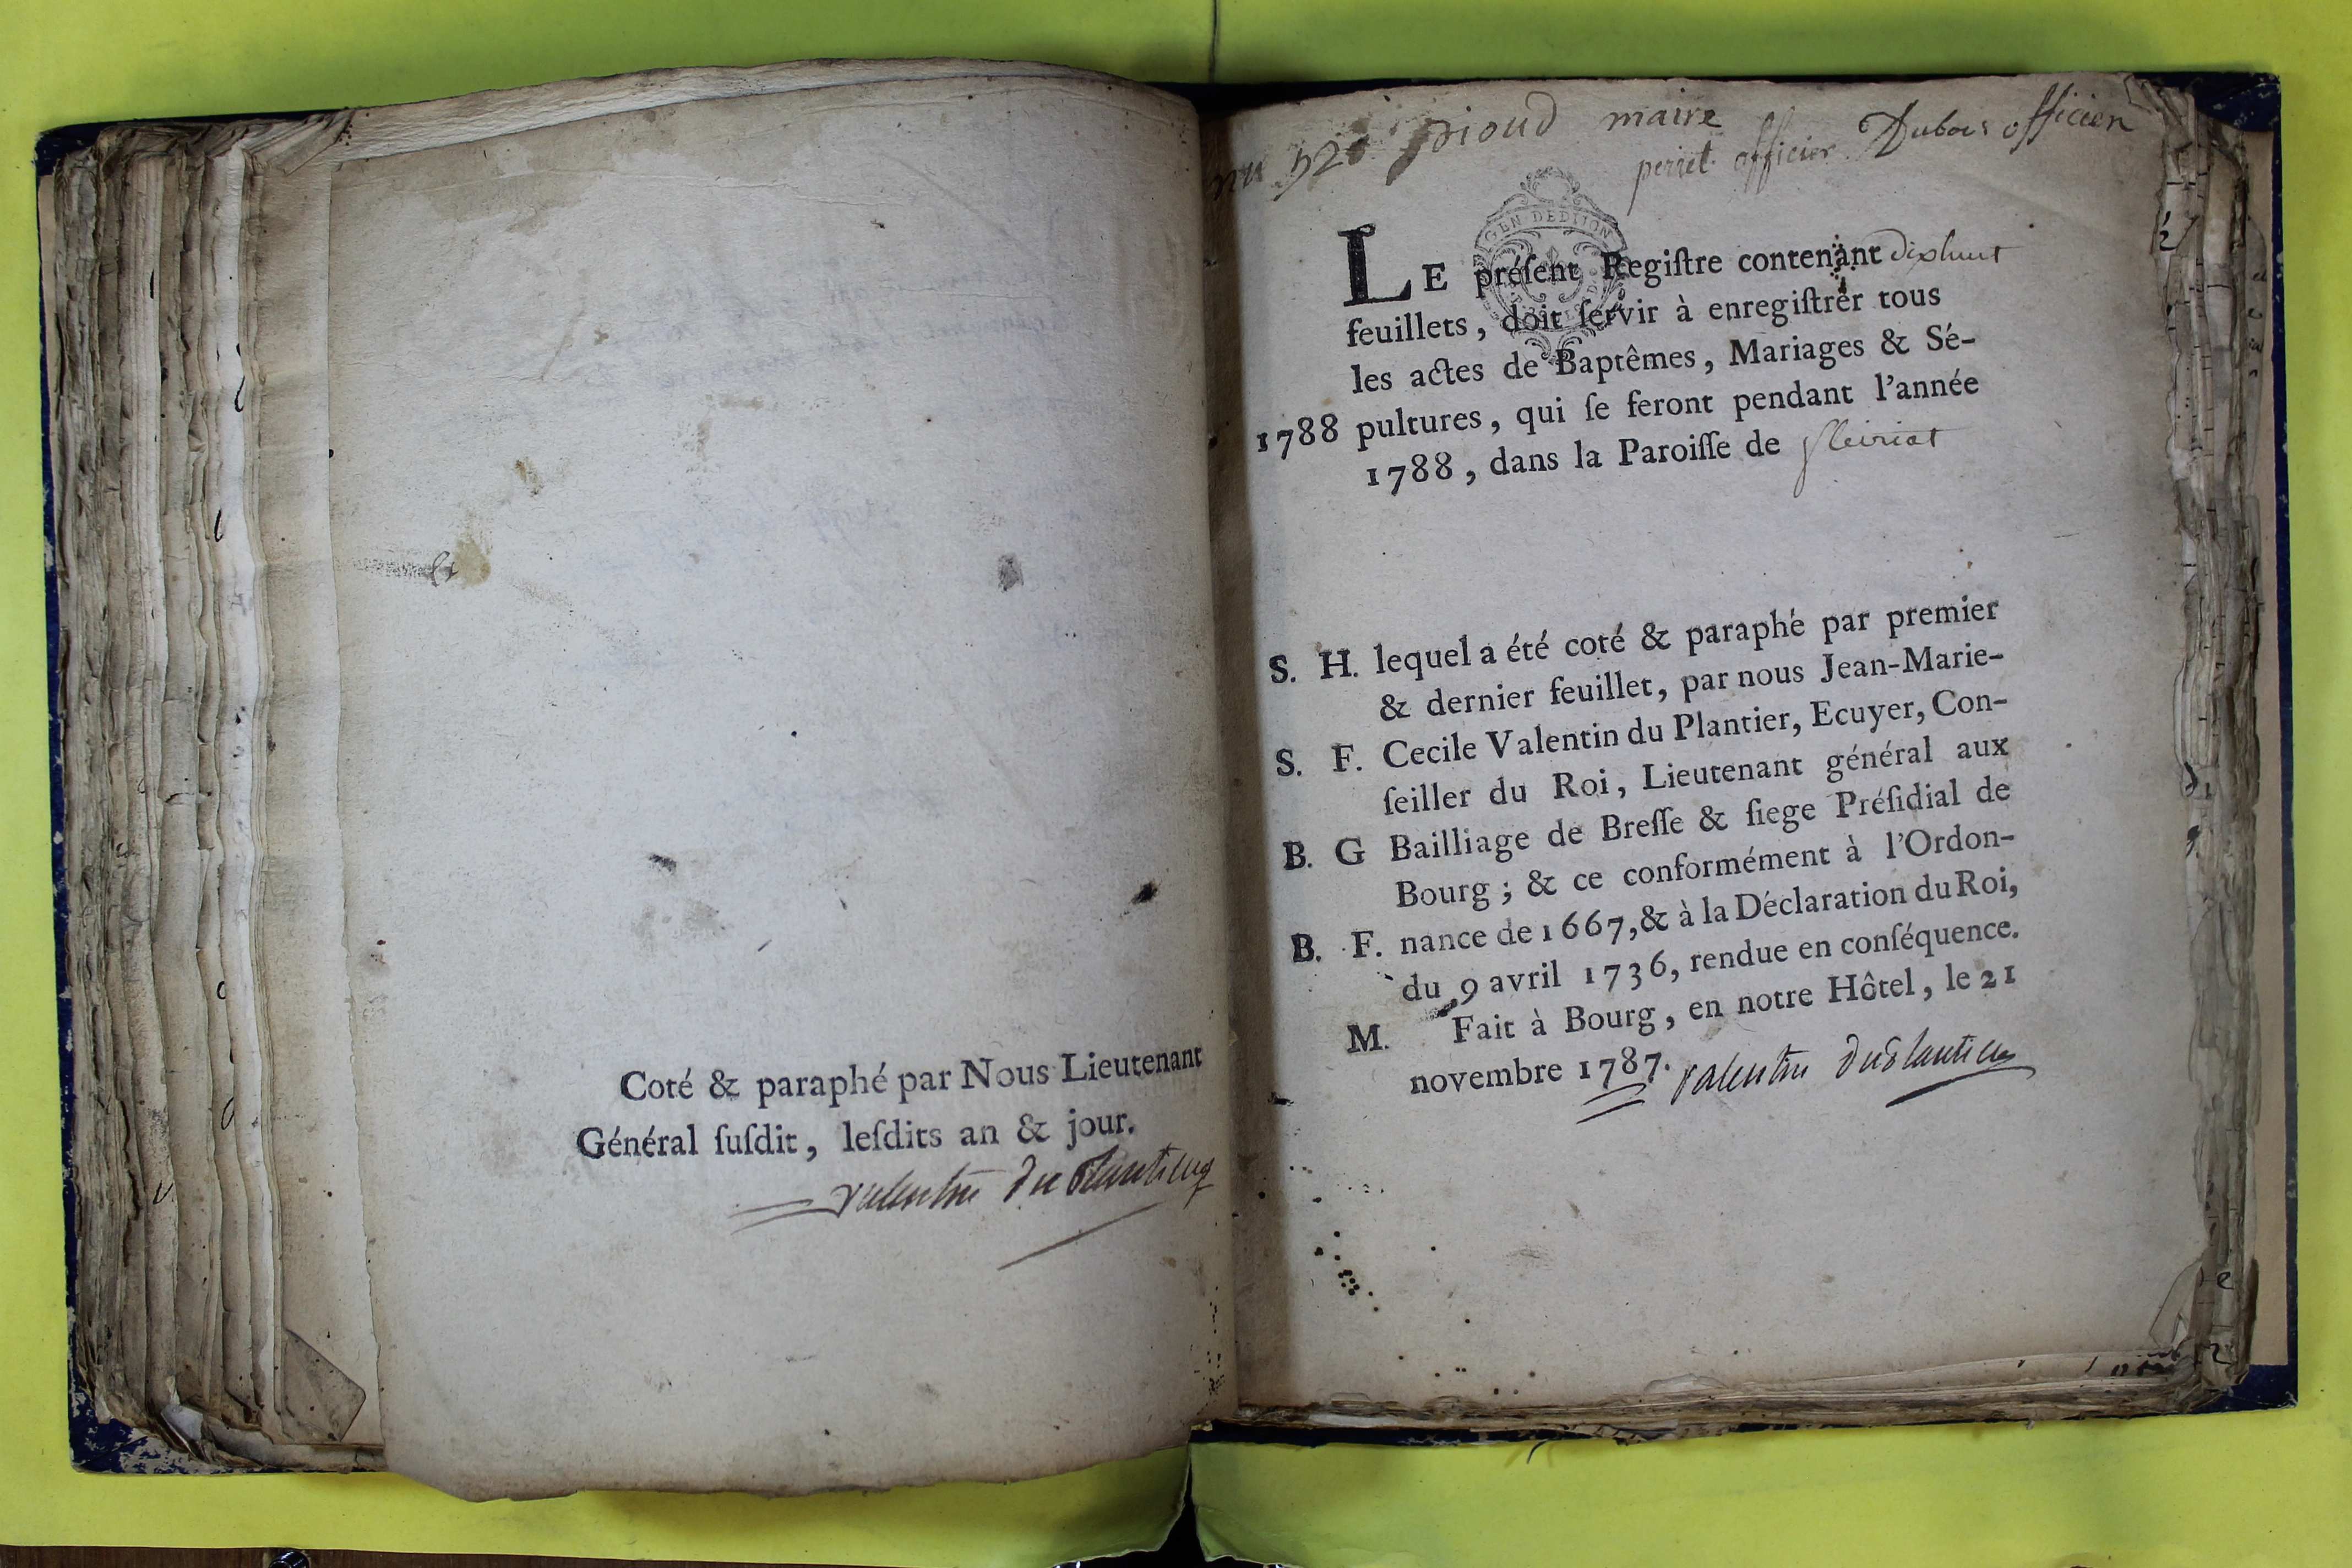 Coté & paraphé par Nous Lieutenant
Général ſuſdit, leſdits an & jour.
valentin du Plantier
pioud maire
perret officier Dubois officier
GEN DEDIJON
LE préſent Regiſtre contenant dixhuit
feuillets, doit ſervir à enregiſtrer tous
les actes de Baptêmes, Mariages & Sé-
1788 pultures, qui ſe feront pendant l'année
1788, dans la Paroiſſe de fleiriat
S. H. lequel a été coté & paraphé par premier
& dernier feuillet, par nous Jean-Marie-
S. F. Cecile Valentin du Plantier, Ecuyer, Con-
ſeiller du Roi, Lieutenant général aux
B. G Bailliage de Breſſe & ſiege Préſidial de
Bourg; & ce conformément à l'Ordon-
B. F. nance de 1667, & à la Déclaration du Roi,
du 9 avril 1736, rendue en conſéquence.
M. Fait à Bourg, en notre Hôtel, le 21
novembre 1787. valentin duPlantier